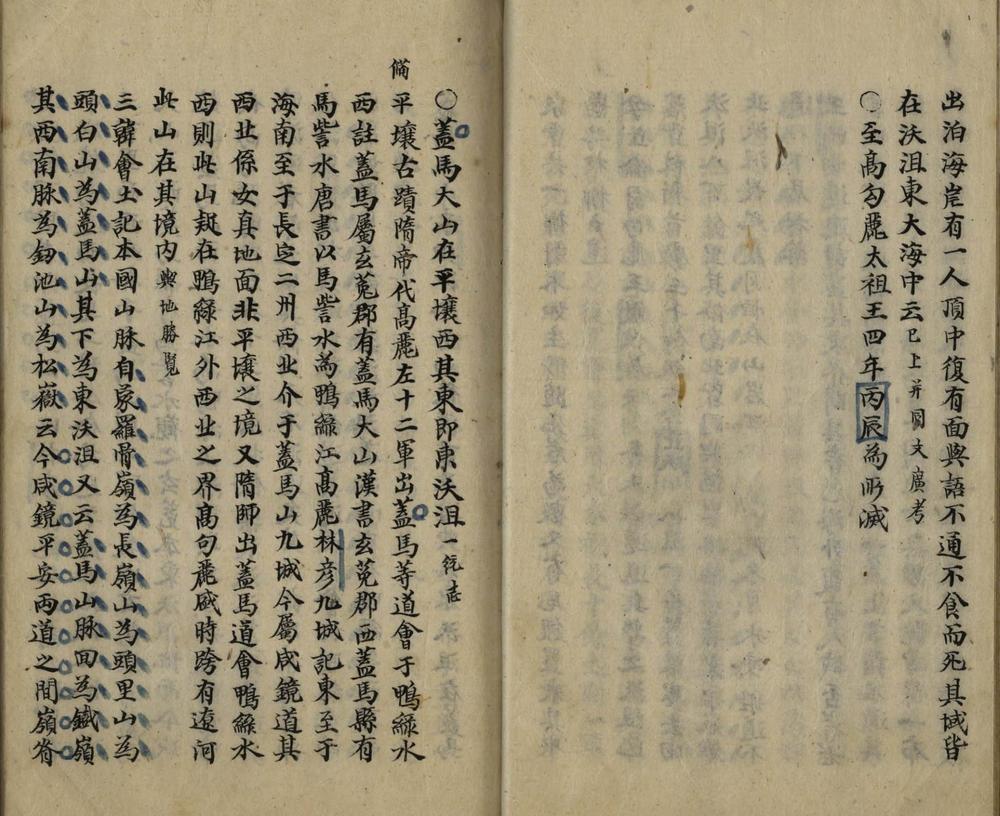 出泊海岸有一人頂中復有面與語不通不食而死其域皆
在沃沮東大海中云已上并圖文廣考
○至高句麗太祖王四年丙辰為所滅
○蓋馬大山在平壤西其東即東沃沮一統志
備
平壤古蹟隋帝代高麗左十二軍出蓋馬等道會于鴨綠水
西註蓋馬屬玄菟郡有蓋馬大山漢書玄菟郡西蓋馬縣有
馬訾水唐書以馬訾水為鴨綠江高麗林彦九城記東至于
海南至于長定二州西北介于蓋馬山九城今屬咸鏡道其
西北係女真地面非平壤之境又隋師出蓋馬道會鴨綠水
西則此山疑在鴨綠江外西北之界高句麗盛時跨有遼河
此山在其境内輿地勝覽
三韓會土記本國山脉自象羅骨嶺為長嶺山為頭里山為
頭白山為蓋馬山其下為東沃沮又云蓋馬山脉回為鐵嶺
其西南脉為釼池山為松嶽云今咸鏡平安两道之間嶺脊